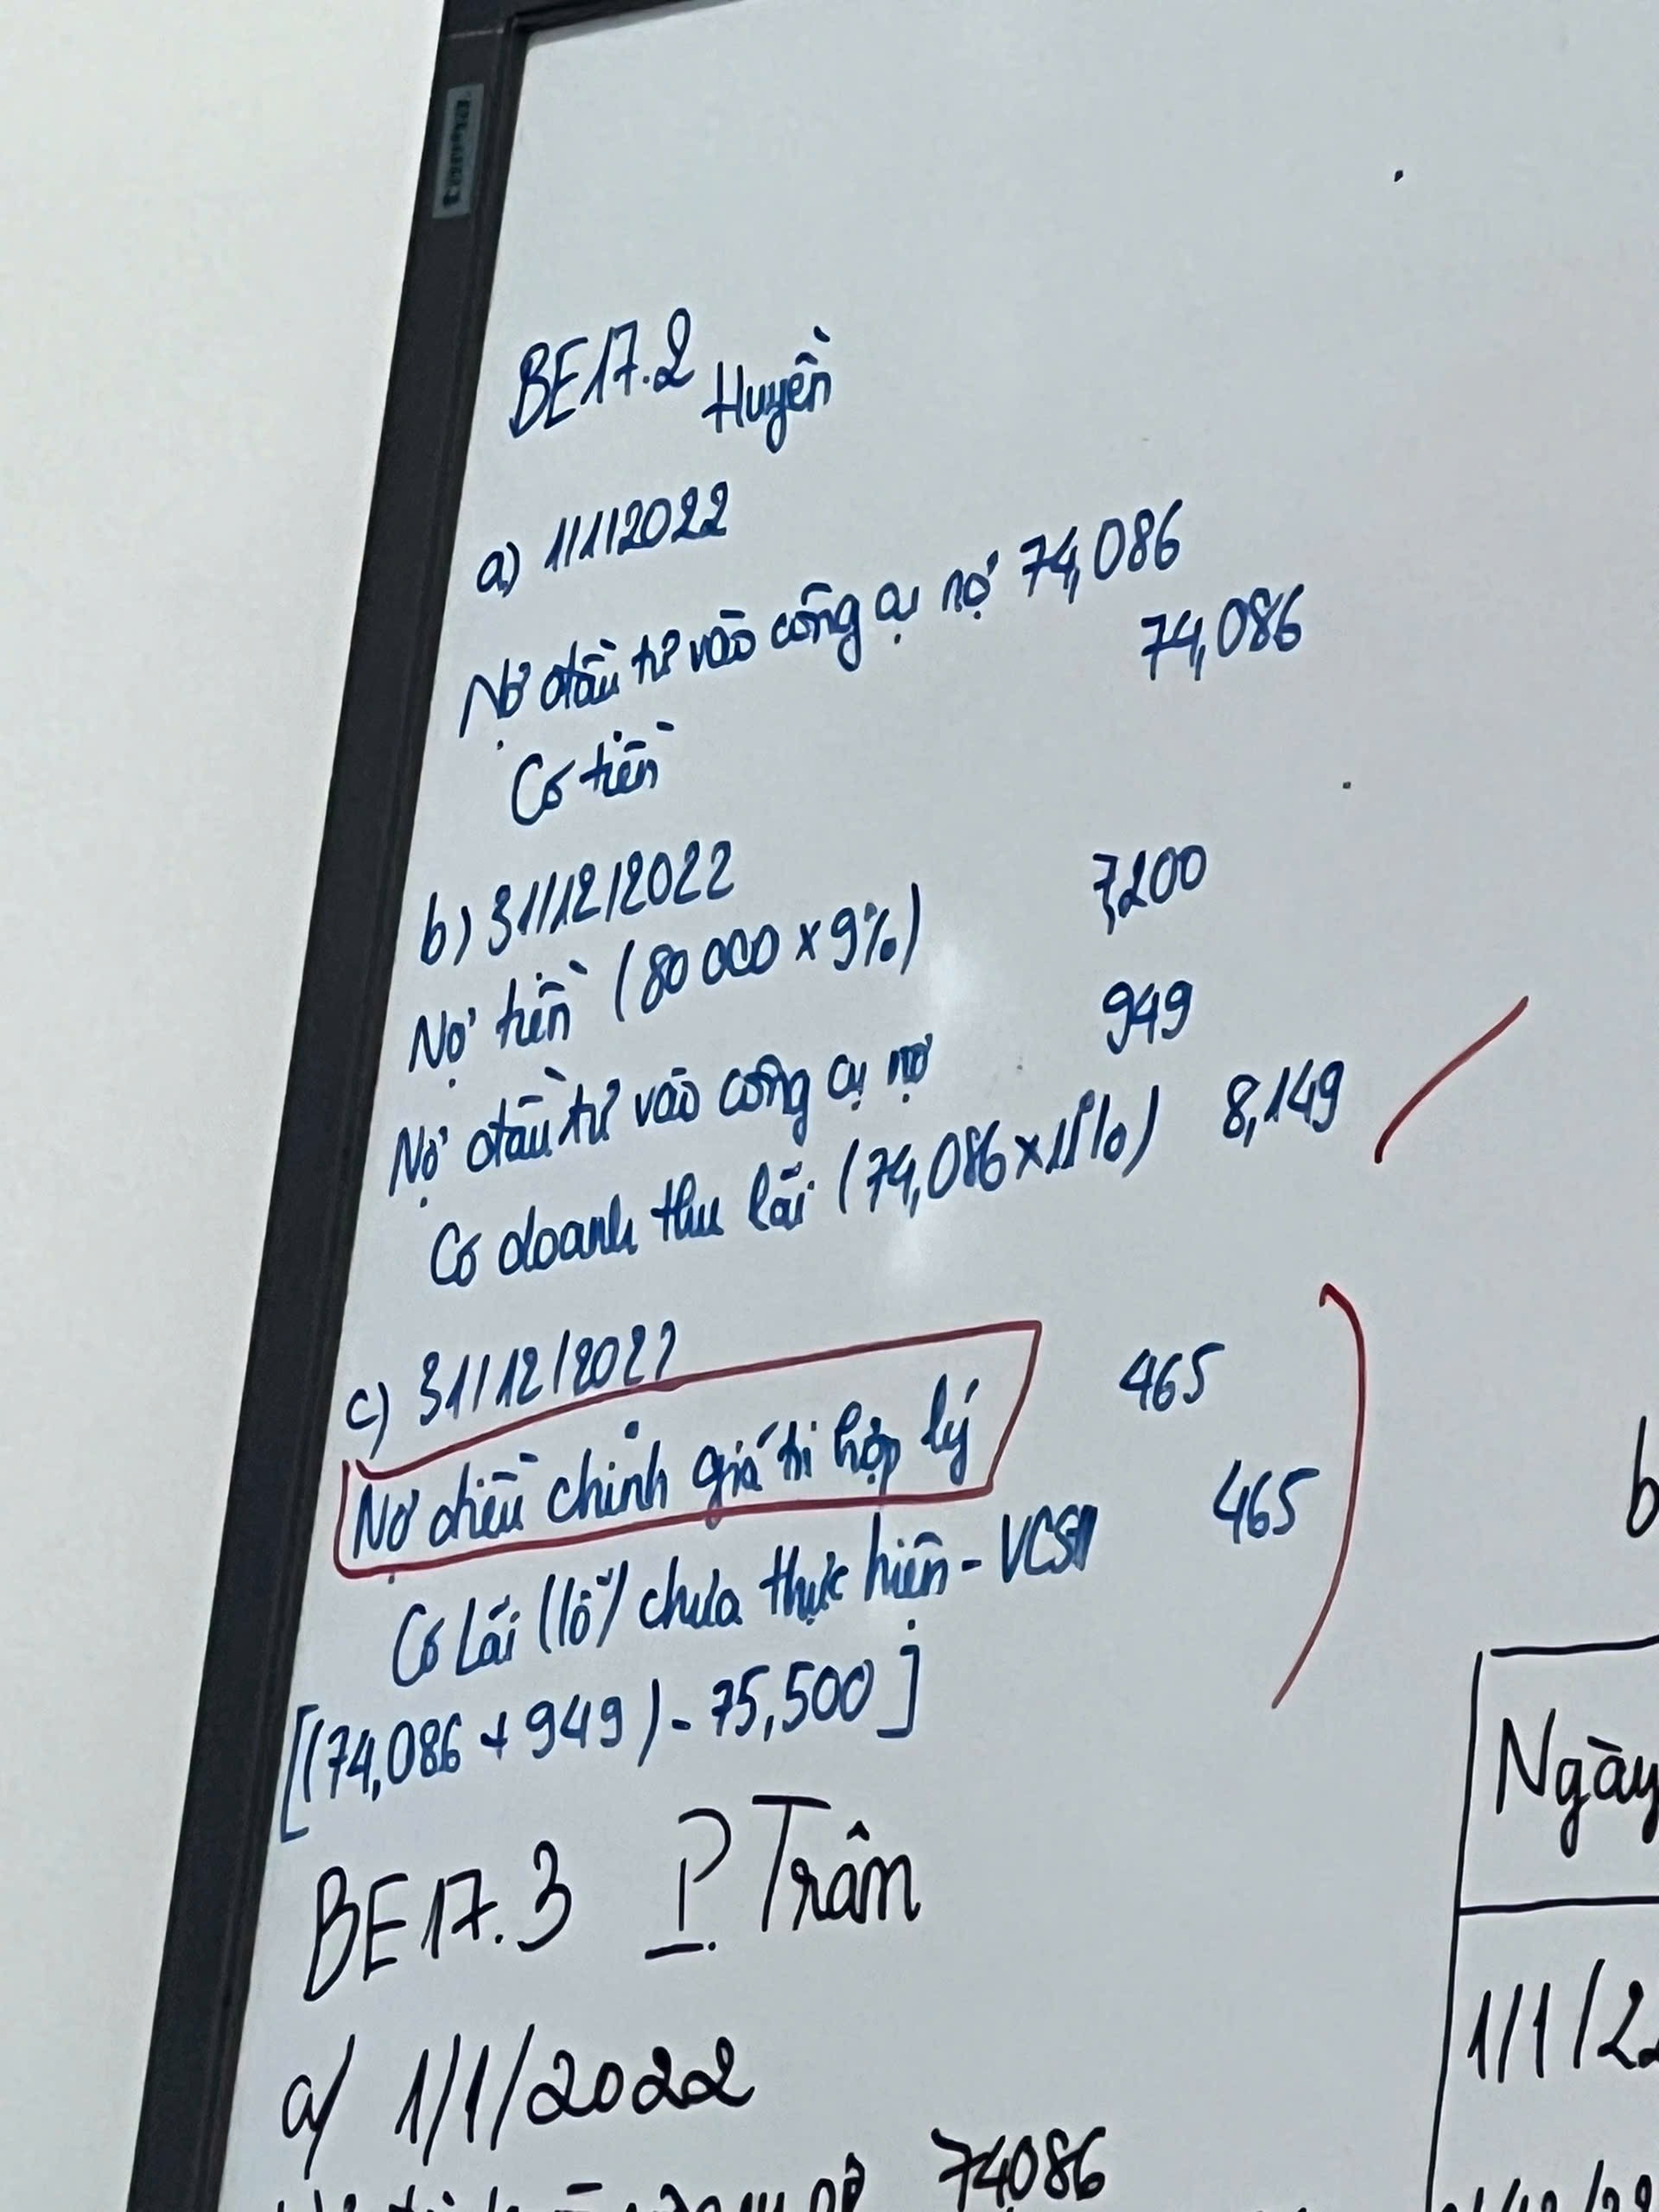 BE17.2 Huyền
a) 1/1/2022
Nợ đầu tư vào công cụ nợ 74,086
Có tiền 74,086
b) 31/12/2022
Nợ tiền (80 000 x 9%) 7,200
Nợ đầu tư vào công cụ nợ 949
Có doanh thu lãi (74,086 x 11%) 8,149
c) 31/12/2022
Nợ điều chỉnh giá trị hợp lý 465
Có Lãi (lỗ) chưa thực hiện - VCSH 465
[(74,086 + 949) - 75,500]
BE17.3 P. Trân
a/ 1/1/2022
74086
b
Ngày
1/1/22